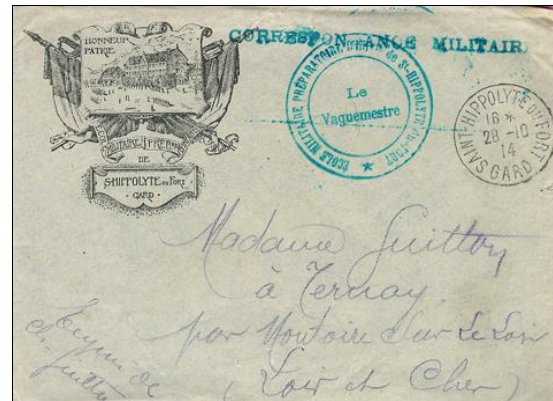 HONNEUR
PATRIE
ECOLE MILITAIRE PREPARATOIRE
DE
St-HIPPOLYTE du FORT
GARD
CORRESPONDANCE MILITAIRE
ÉCOLE MILITAIRE PRÉPARATOIRE de St-HIPPOLYTE-du-FORT
Le
Vaguemestre
SAINT-HIPPOLYTE DU FORT
16 *
28 -10
14
GARD
Madame Guitton
à Ternay
par Montoire sur Le Loir
(Loir et Cher)